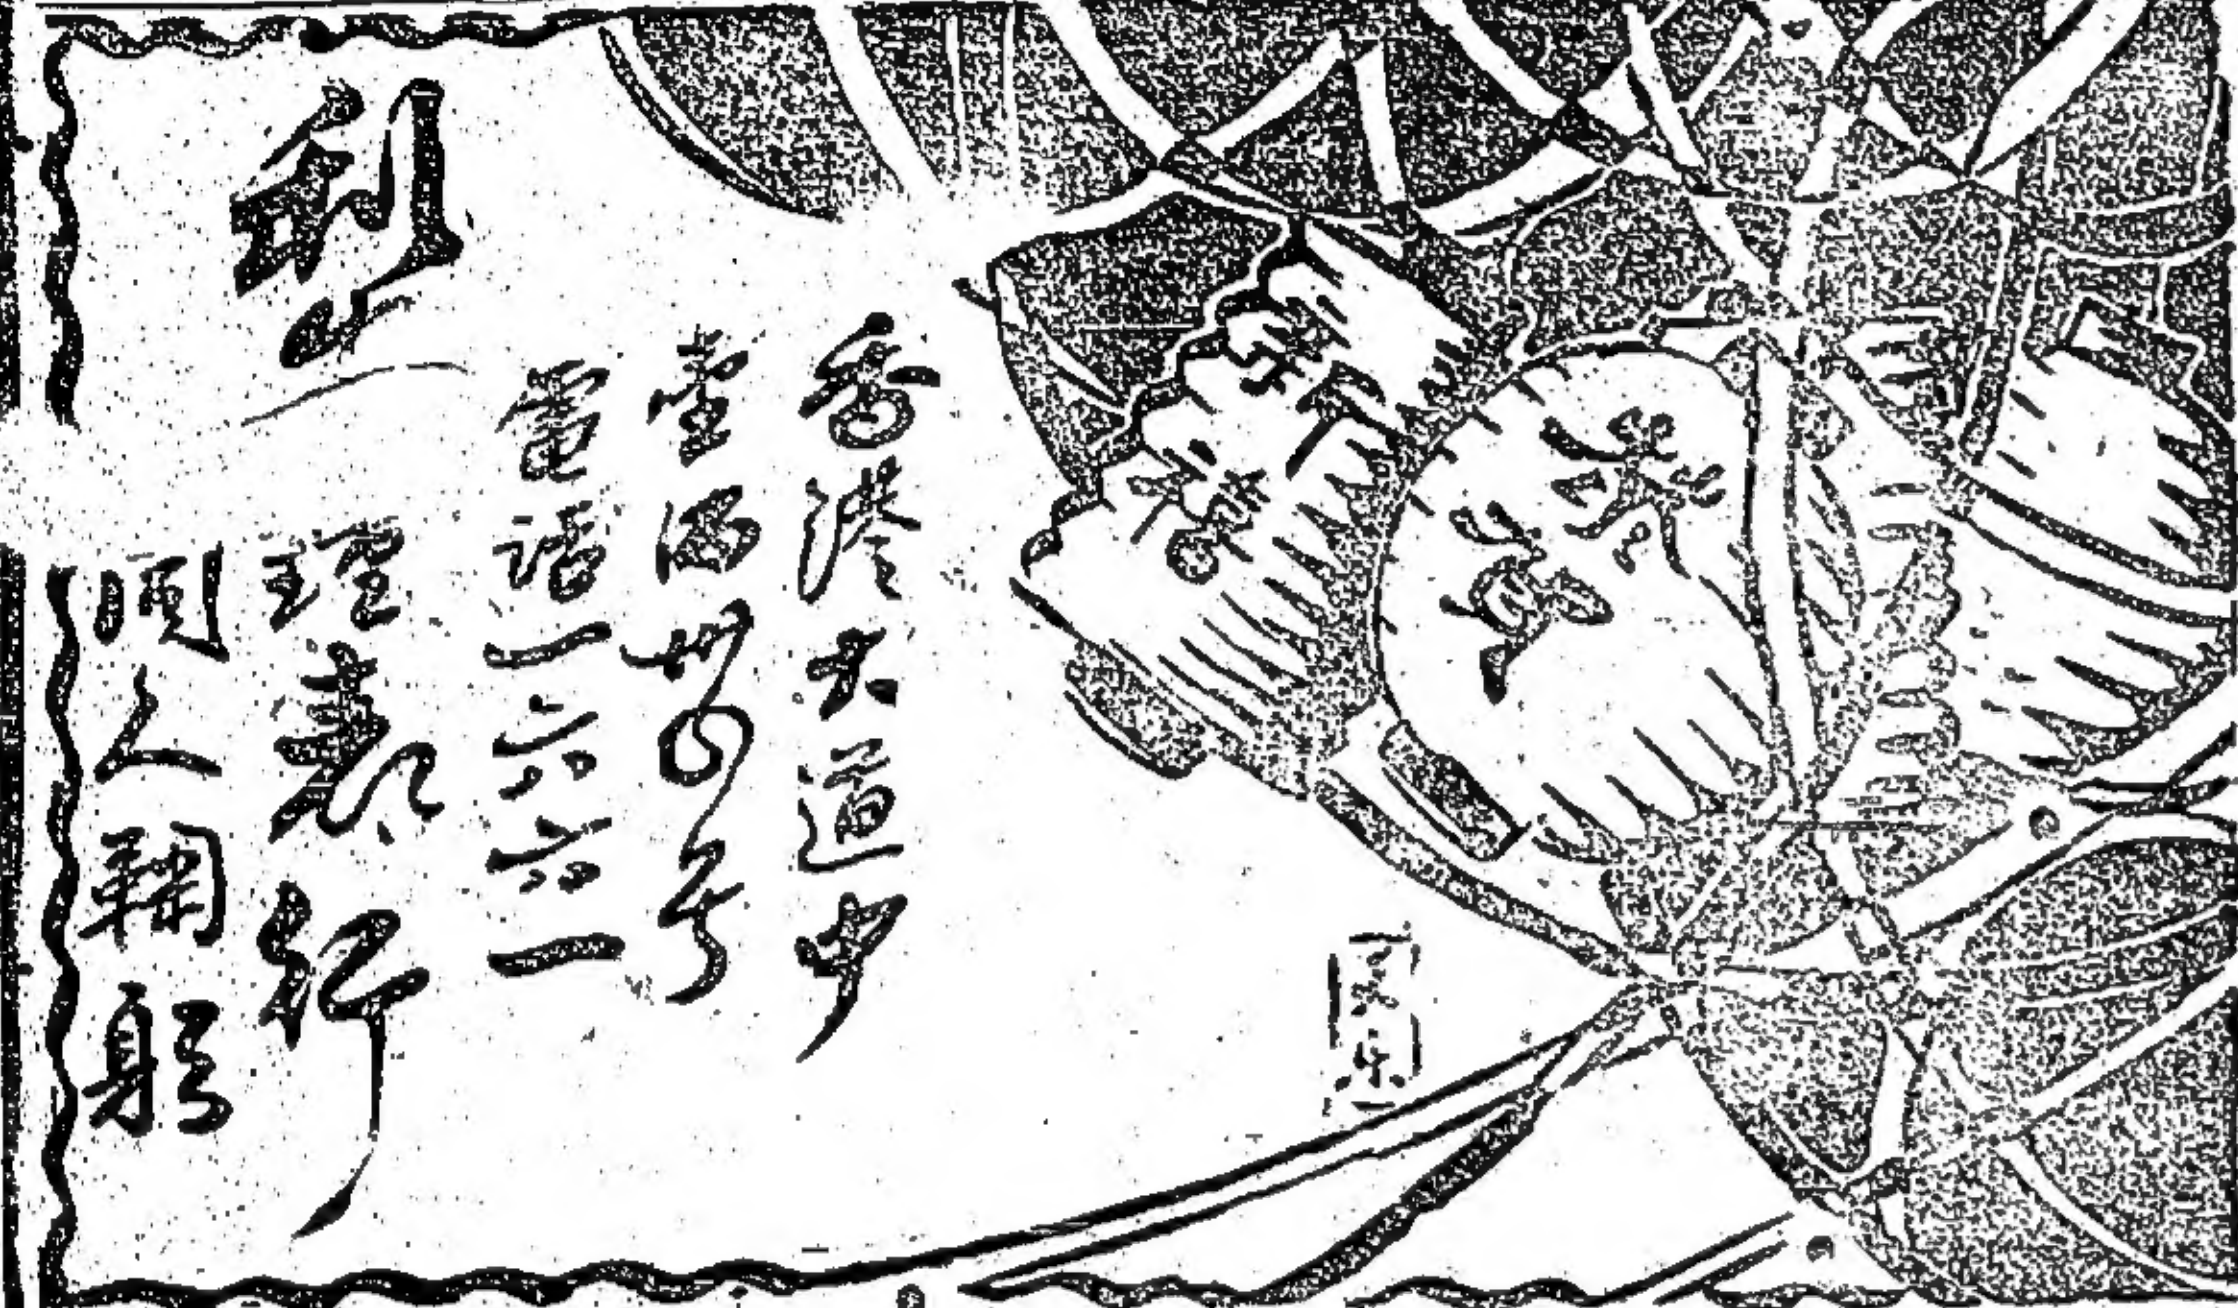 恭賀新禧
香港大道中
壹佰卅四号
電話一六六一
理表行
同人鞠躬